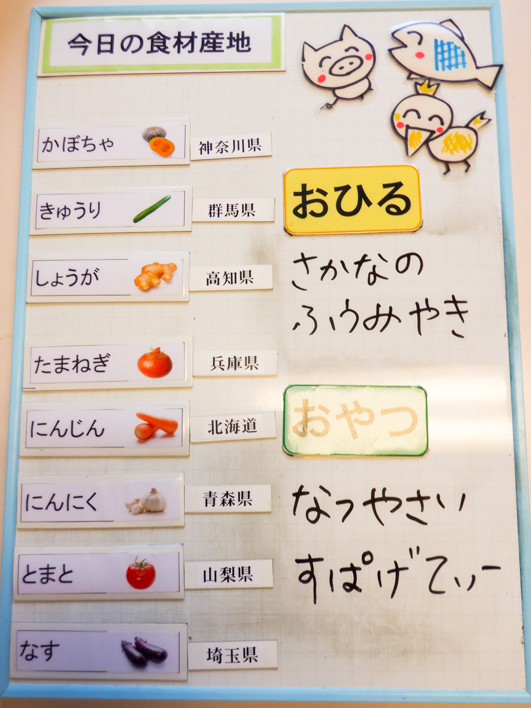 今日の食材産地
かぼちゃ 神奈川県
きゅうり 群馬県
しょうが 高知県
たまねぎ 兵庫県
にんじん 北海道
にんにく 青森県
とまと 山梨県
なす 埼玉県
おひる
さかなの
ふうみやき
おやつ
なつやさい
すぱげてぃー